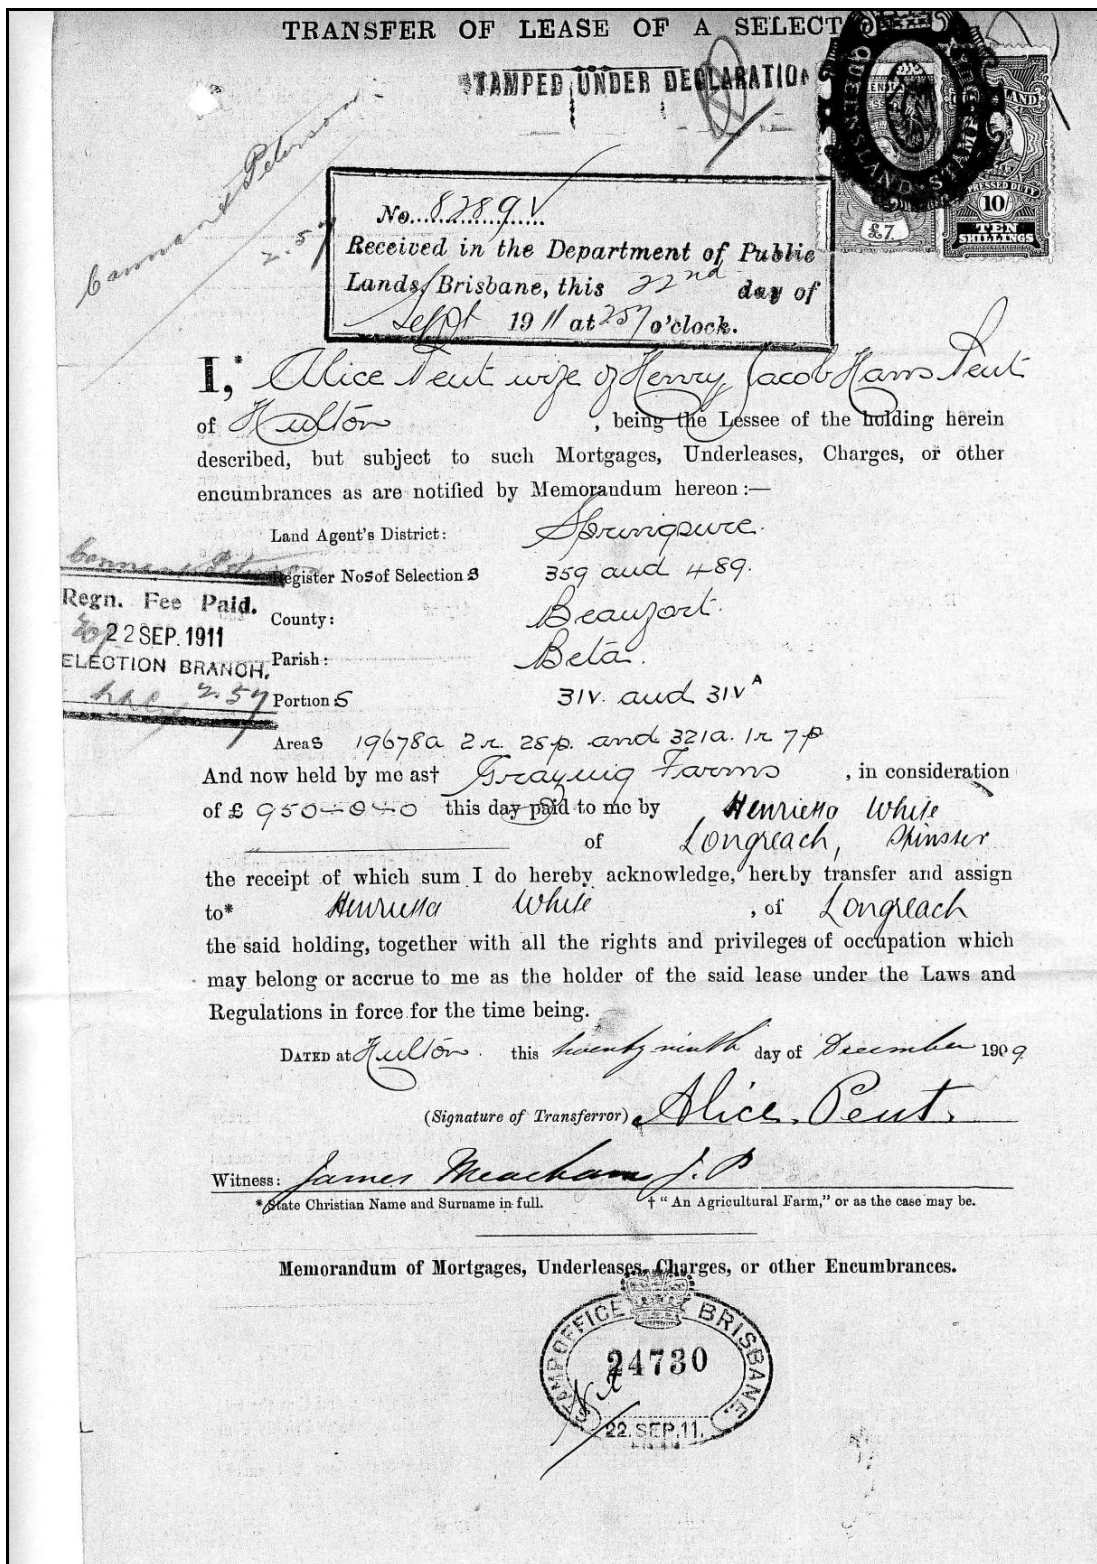 TRANSFER OF LEASE OF A SELECT
STAMPED UNDER DECLARATION
QUEENSLAND STAMP DUTY
£7
IMPRESSED DUTY
10/-
TEN
SHILLINGS
Cannan & Peterson
2.57
No. 8289 V
Received in the Department of Public
Lands, Brisbane, this 22nd day of
Sept 1911 at 2 57 o'clock.
I,* Alice Peut wife of Henry Jacob Hans Peut
of Hulton , being the Lessee of the holding herein
described, but subject to such Mortgages, Underleases, Charges, or other
encumbrances as are notified by Memorandum hereon :—
Land Agent's District: Springsure.
Register Nos of Selection s 359 and 489.
County: Beaufort.
Parish: Beta.
Portion s 31v. and 31vA
Area s 19678a 2r. 28p. and 321a. 1r 7p
Regn. Fee Paid.
22 SEP. 1911
ELECTION BRANCH.
2.57
And now held by me as† Grazing Farms , in consideration
of £ 950-0-0 this day paid to me by Henrietta White
of Longreach, Spinster
the receipt of which sum I do hereby acknowledge, hereby transfer and assign
to* Henrietta White , of Longreach
the said holding, together with all the rights and privileges of occupation which
may belong or accrue to me as the holder of the said lease under the Laws and
Regulations in force for the time being.
DATED at Hulton. this twenty ninth day of December 1909
(Signature of Transferror) Alice Peut.
Witness: James Meacham J.P
* State Christian Name and Surname in full. † "An Agricultural Farm," or as the case may be.
Memorandum of Mortgages, Underleases, Charges, or other Encumbrances.
STAMP OFFICE BRISBANE.
24730
Nil
22. SEP. 11.